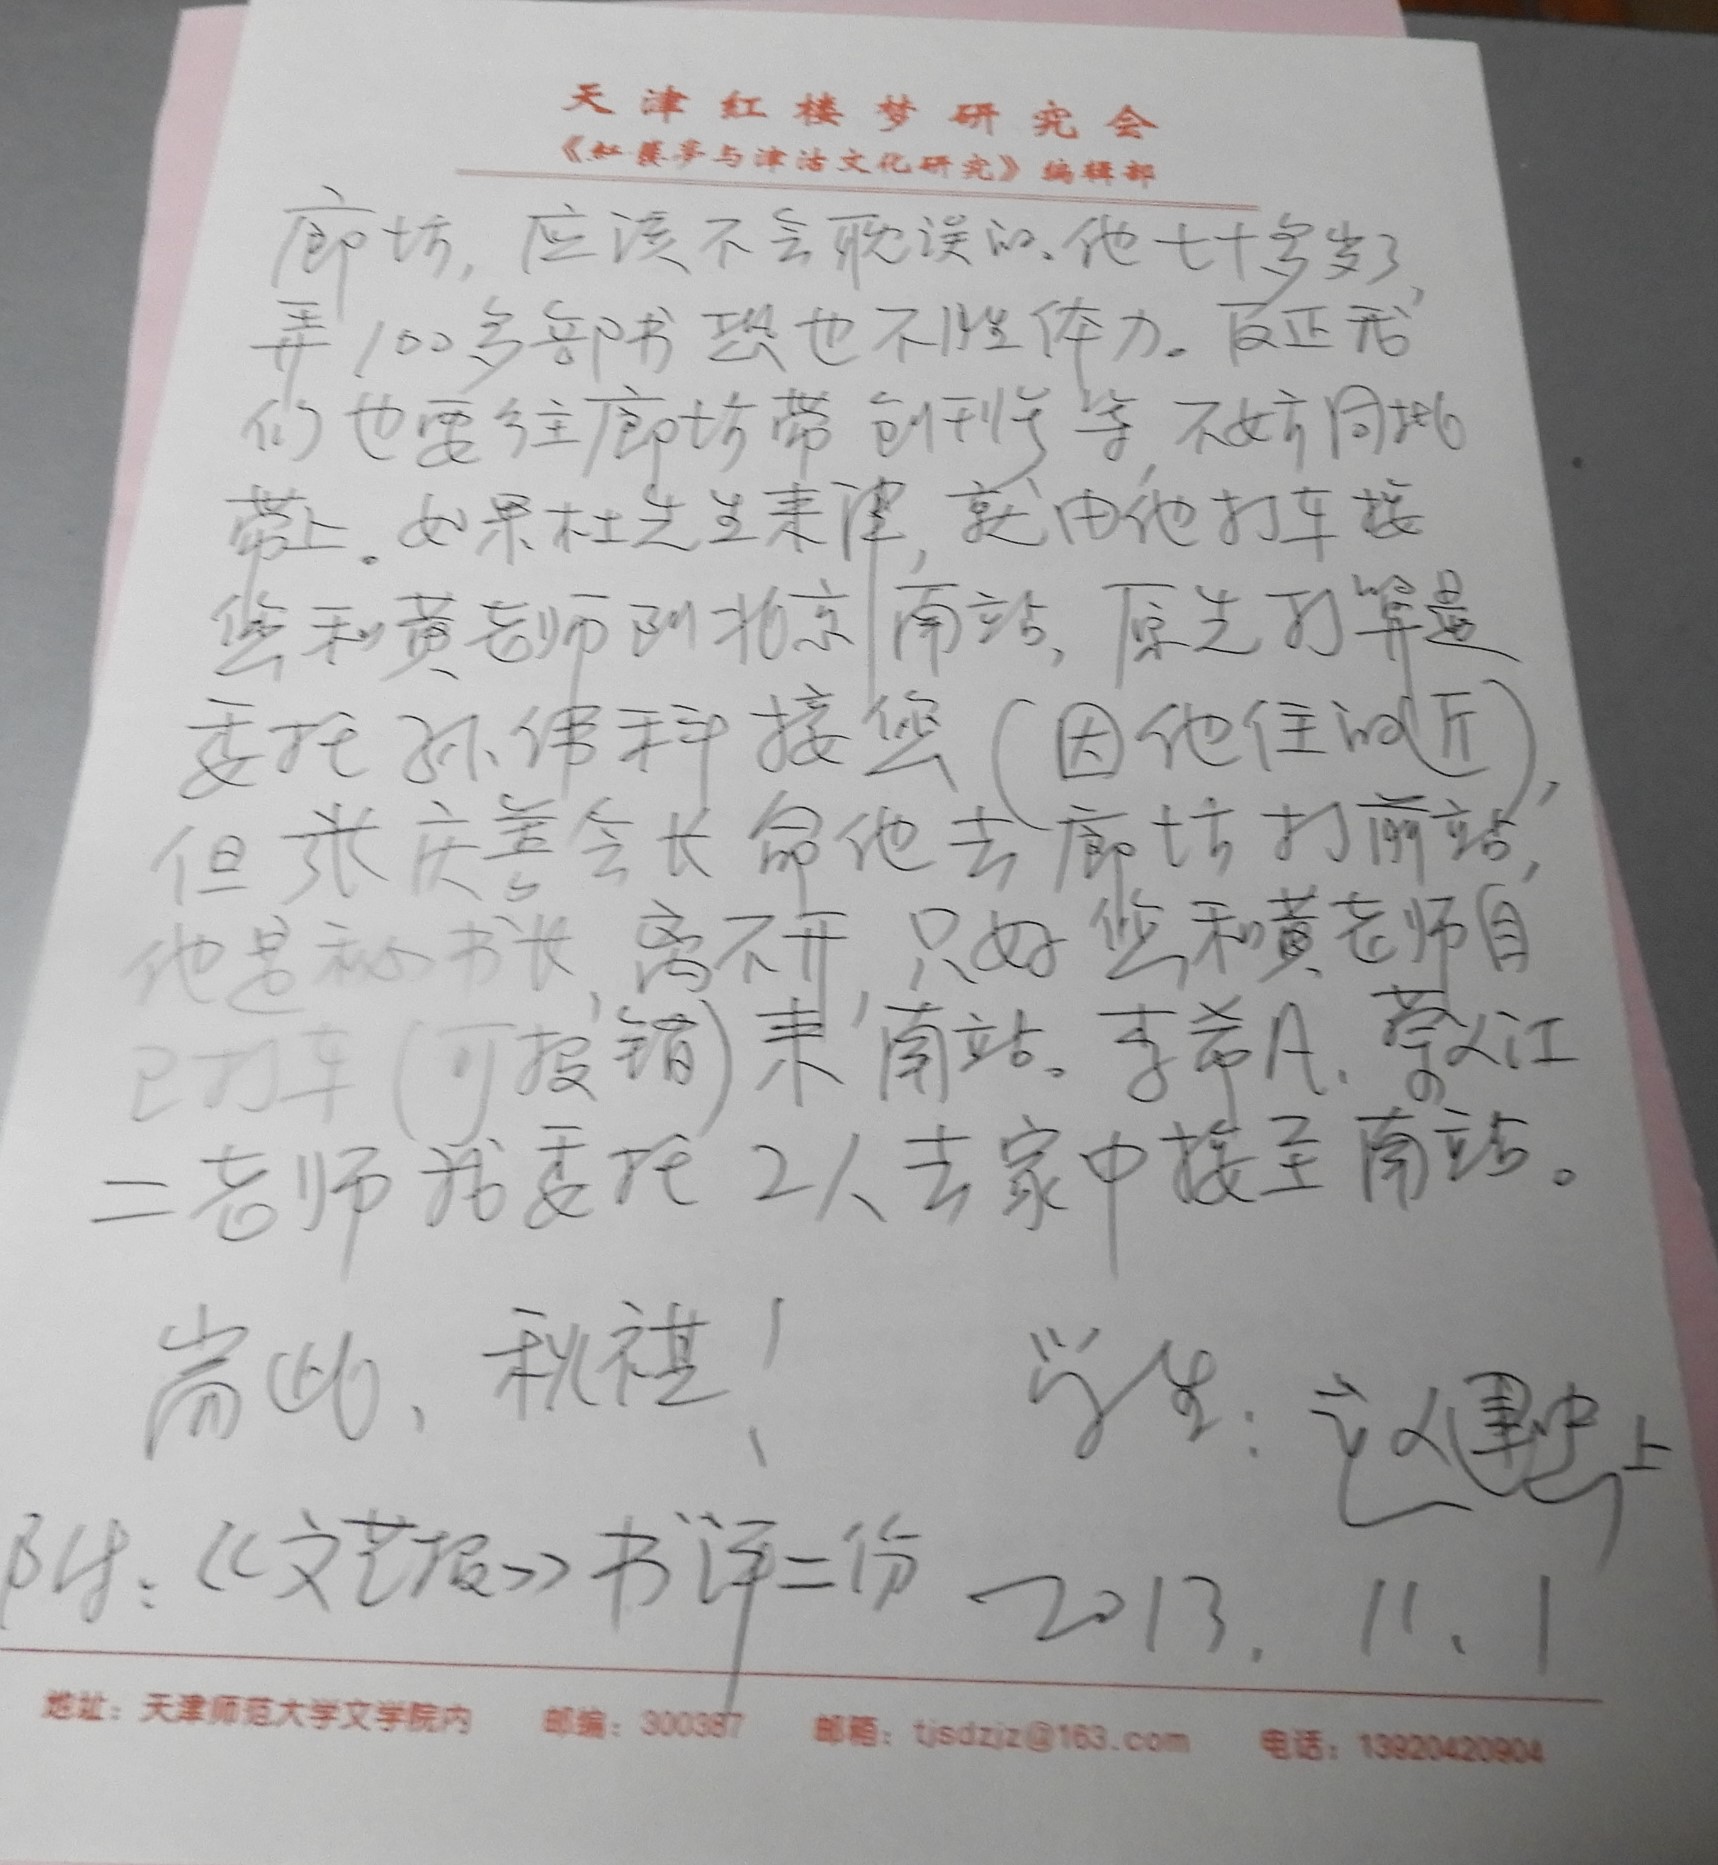 天津红楼梦研究会
《红楼梦与津沽文化研究》编辑部
廊坊，应该不会耽误的。他七十多岁了，
弄100多部书恐也不胜体力。反正我
们也要往廊坊带创刊号等，不妨同批
带上。如果杜先生来津，就由他打车接
您和黄老师到北京南站，原先打算是
委托孙伟科接您（因他住的近），
但张庆善会长命他去廊坊打前站，
他是秘书长，离不开，只好您和黄老师自
己打车（可报销）来南站。李希凡、蔡义江
二老师我委托2人去家中接至南站。
耑此、秋祺！
学生：赵建忠上
附：《文艺报》书评二份
2013.11.1
地址：天津师范大学文学院内 邮编：300387 邮箱：tjsdzjz@163.com 电话：13920420904